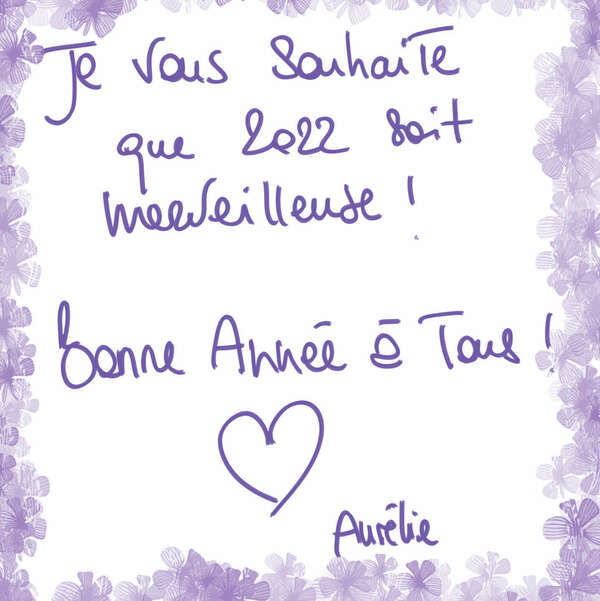 Je vous souhaite
que 2022 soit
merveilleuse !
Bonne Année à Tous !
Aurélie